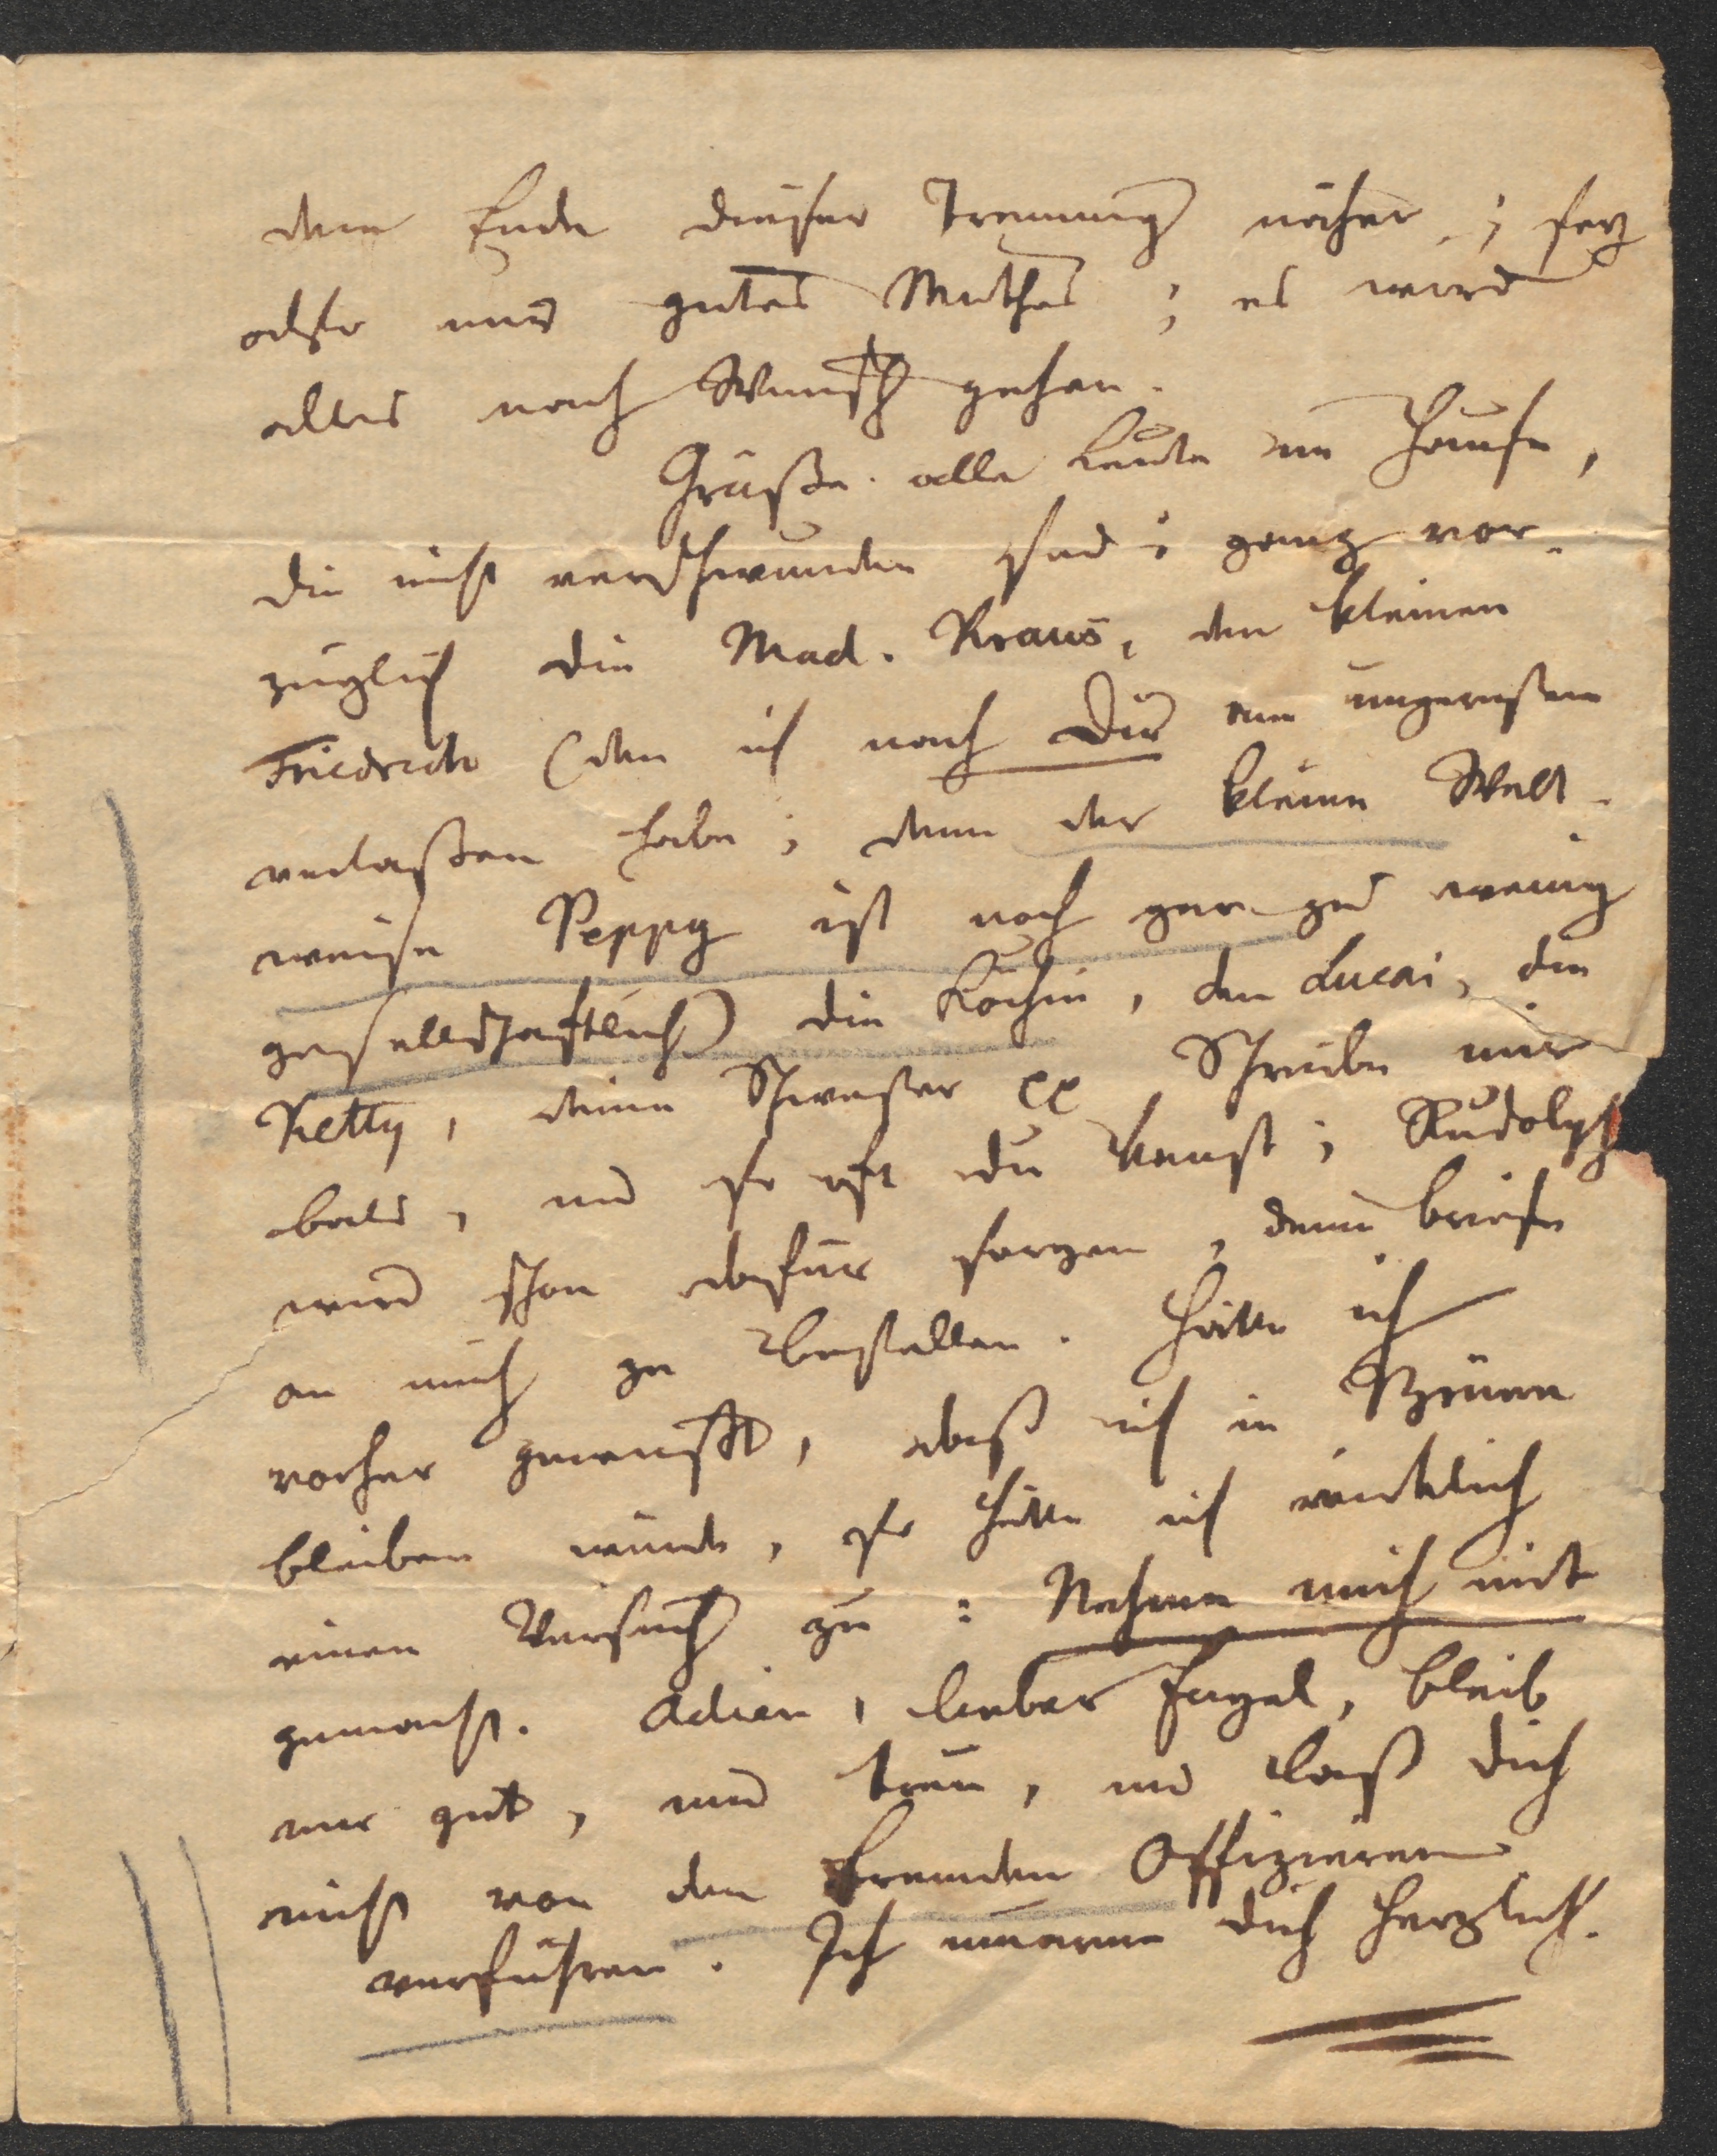 dem Ende dieser Trennung näher; sey
also nur gutes Muthes; es wird
alles nach Wunsch gehen.
Grüsse alle Leute im Hause,
die nicht verschwunden sind; ganz vor-
züglich die Mad. Kraus, den kleinen
Friedrich (den ich nach Dir am ungernsten
verlassen habe; denn der kleine Welt-
weise Peppy ist noch gar zu wenig
gesellschaftlich) die Köchin, den Lucai, die
Ketty, deine Schwester xx Schreibe mir
bald, und so oft du kannst; Rudolph
wird schon dafür sorgen, deine Briefe
an mich zu bestellen. Hätte ich
vorher gewusst, dass ich in Brünn
bleiben würde, so hätte ich wirklich
einen Versuch zu: Nehme mich mit
gemacht. Adieu, lieber Engel, bleib
mir gut, und treu, und lass dich
nicht von den fremden Offizieren
verführen. Ich umarme dich herzlich.